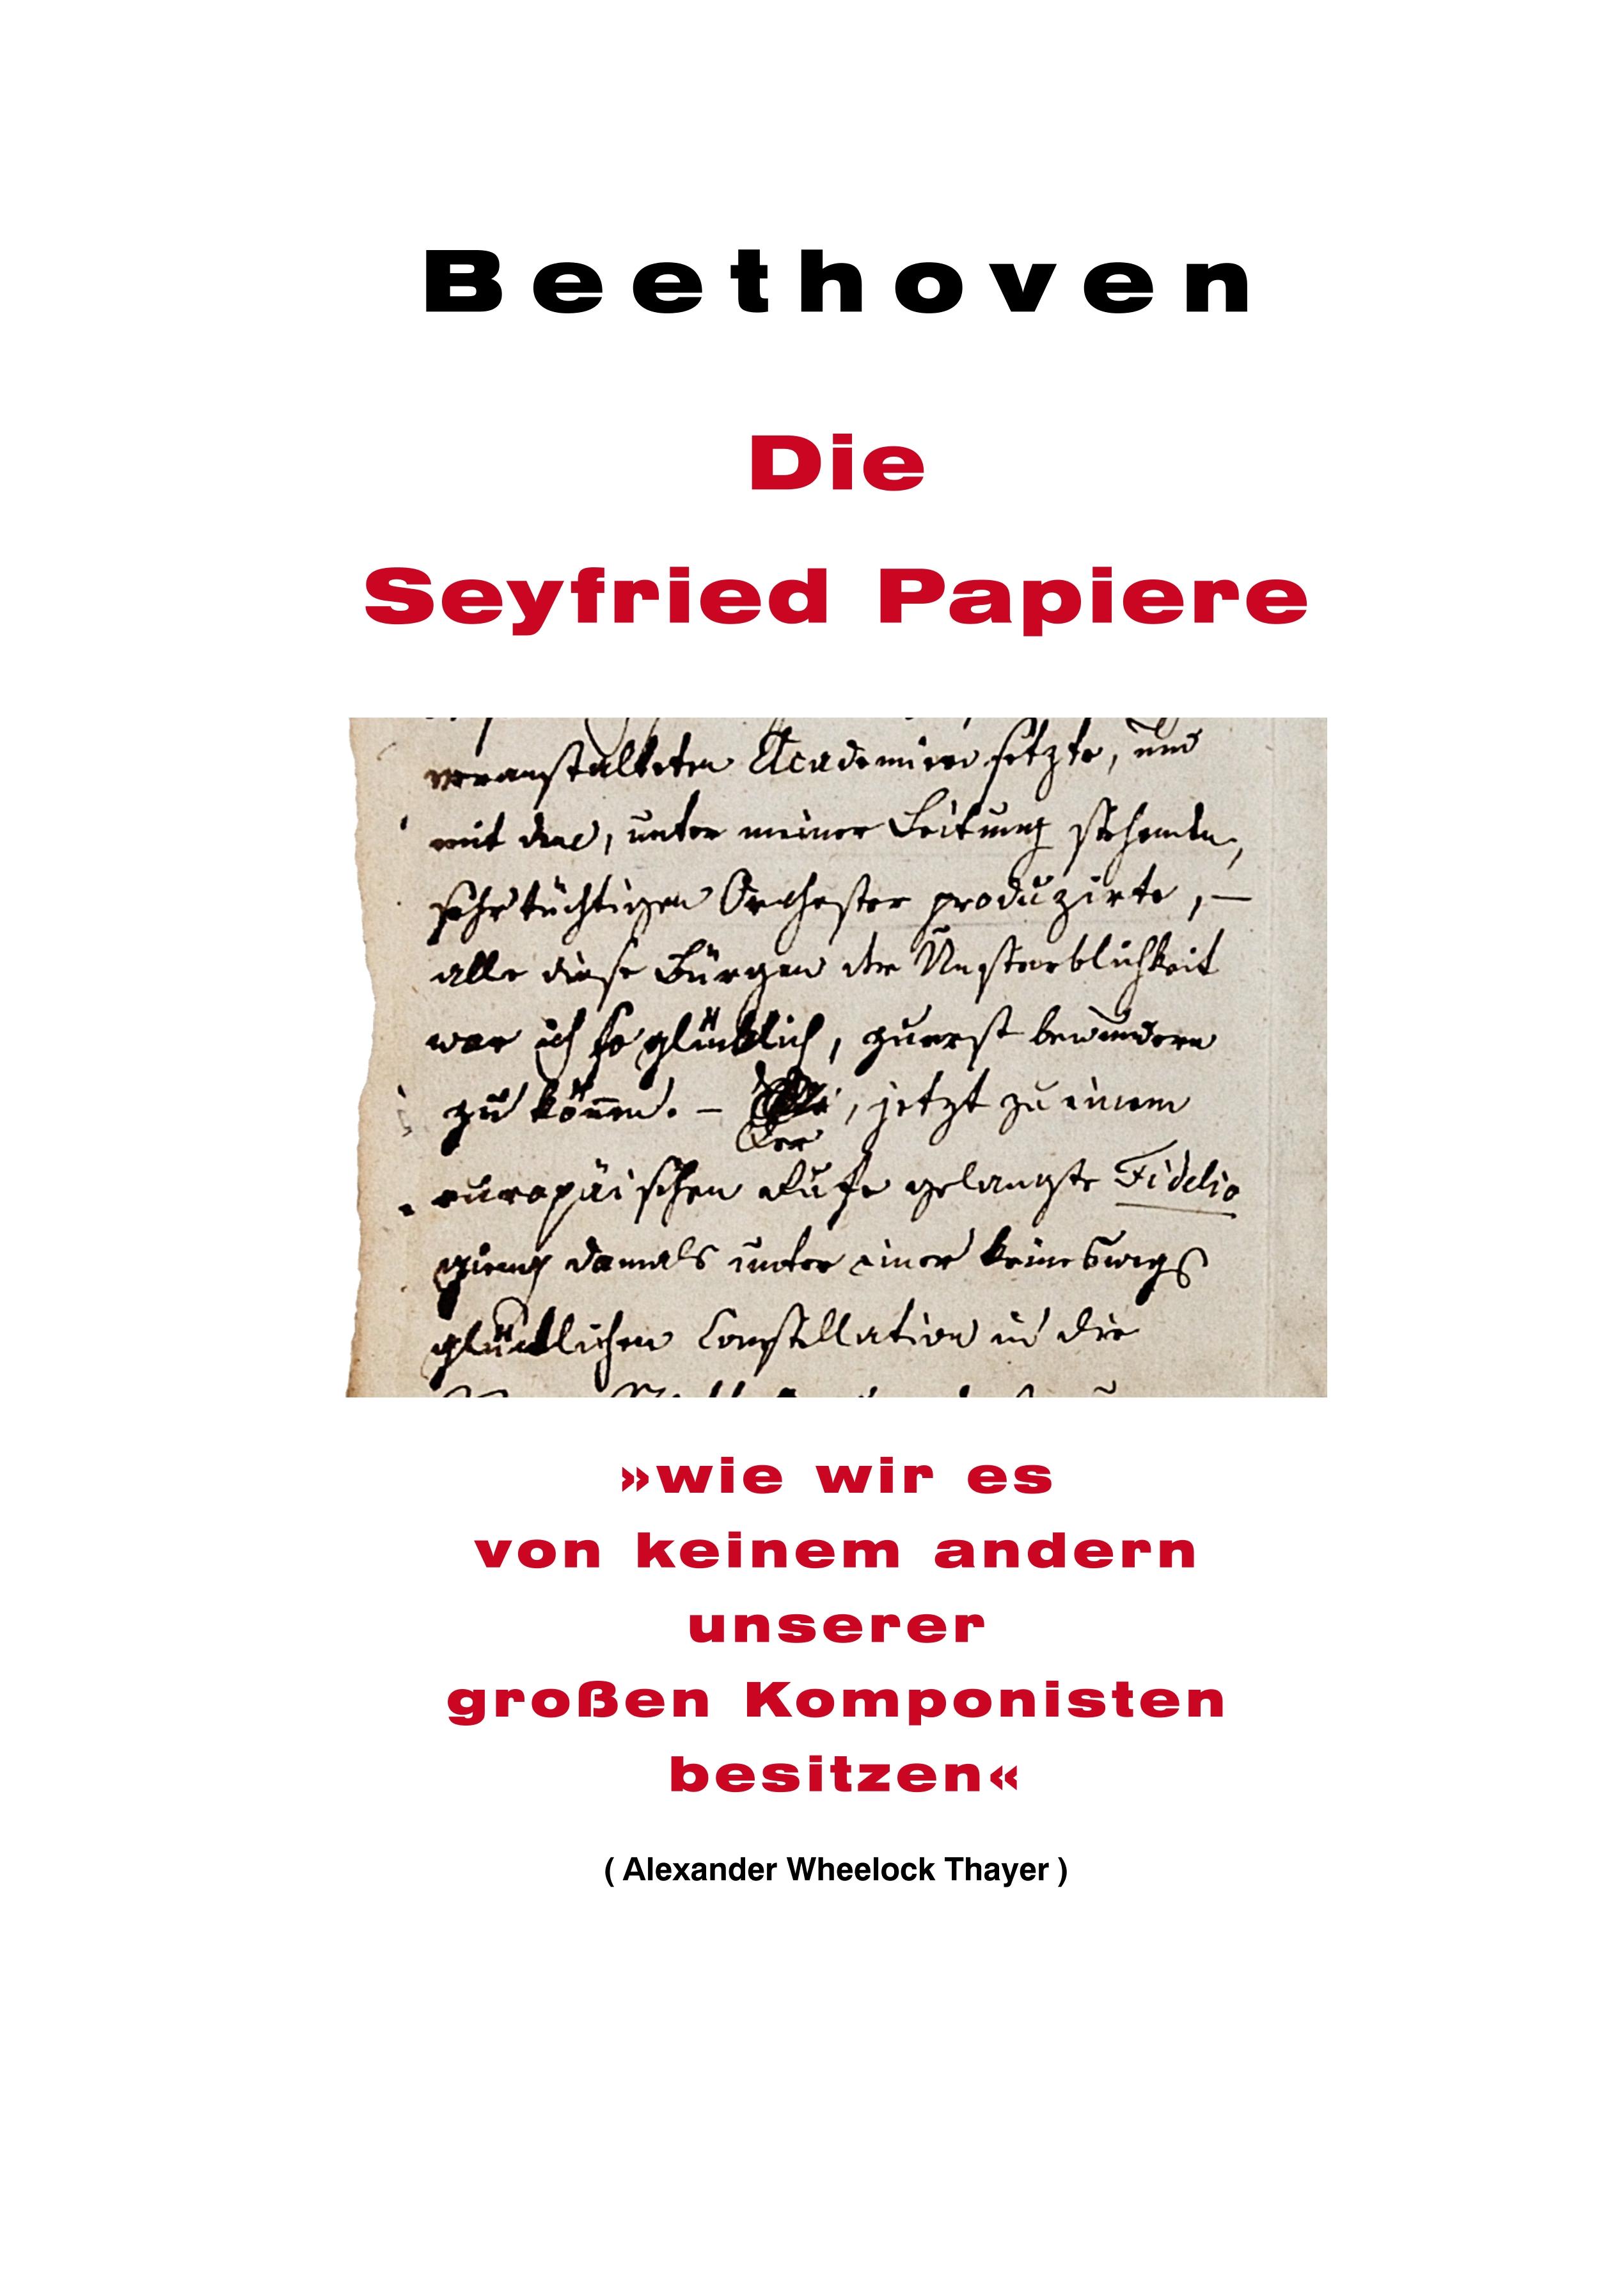 Beethoven
Die
Seyfried Papiere
veranstalteten Academien setzte, und
mit dem, unter meiner Leitung stehenden,
sehr tüchtigen Orchester produzirte, –
alle diese Bürgen der Unsterblichkeit
war ich so glücklich, zuerst bewundern
zu können. – , jetzt zu einem
Der
europäischen Rufe gelangte Fidelio
gieng damals unter einer keineswegs
glücklichen Constellation in die
»wie wir es
von keinem andern
unserer
großen Komponisten
besitzen«
( Alexander Wheelock Thayer )